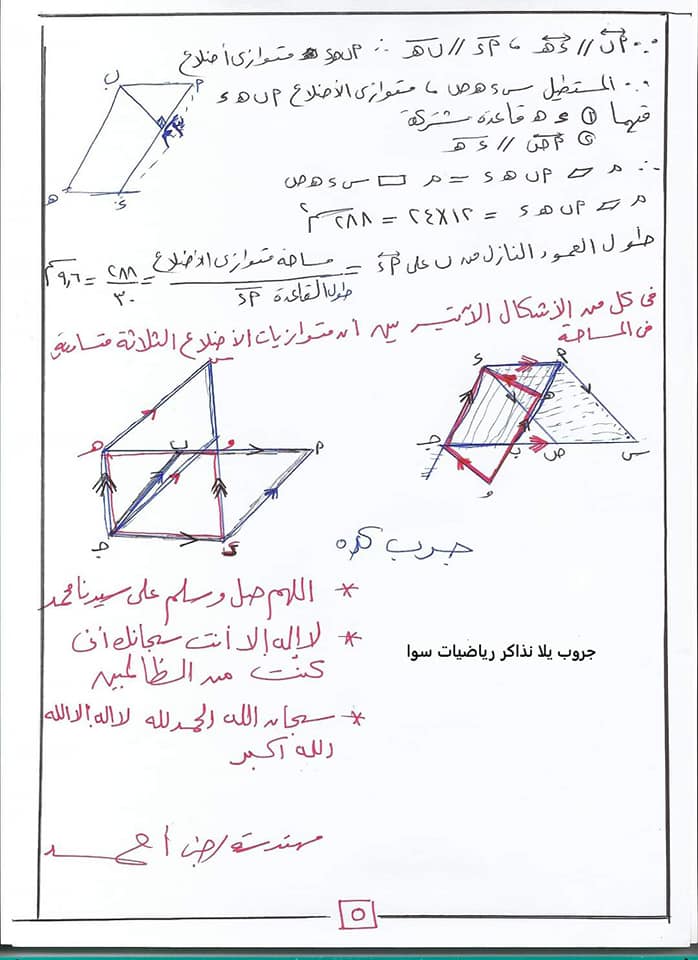 ∵ أب // ءهـ ، أء // بهـ ∴ أبهـء متوازى أضلاع
∵ المستطيل س ء هـ ص ، متوازى الأضلاع أ ب هـ ء
فيهما ① ء هـ قاعدة مشتركة
② أص // ءهـ
∴ م ▱ أ ب هـ ء = م ▭ س ء هـ ص
م ▱ أ ب هـ ء = ١٢×٢٤ = ٢٨٨ سم٢
طول العمود النازل من ب على أء = مساحة متوازى الأضلاع / طول القاعدة أء = ٢٨٨ / ٣٠ = ٩,٦ سم
ب
أ
هـ
ء
فى كل من الأشكال الآتية بين أن متوازيات الأضلاع الثلاثة متساوية
فى المساحة
س
هـ
ب
و
أ
جـ
ء
ء
أ
هـ
جـ
ب
ص
س
و
جرب كده
* اللهم صل وسلم على سيدنا محمد
* لا اله إلا أنت سبحانك أنى
كنت من الظالمين
* سبحان الله الحمد لله لا اله الا الله
الله أكبر
جروب يلا نذاكر رياضيات سوا
مهندسة
أحمد
٥